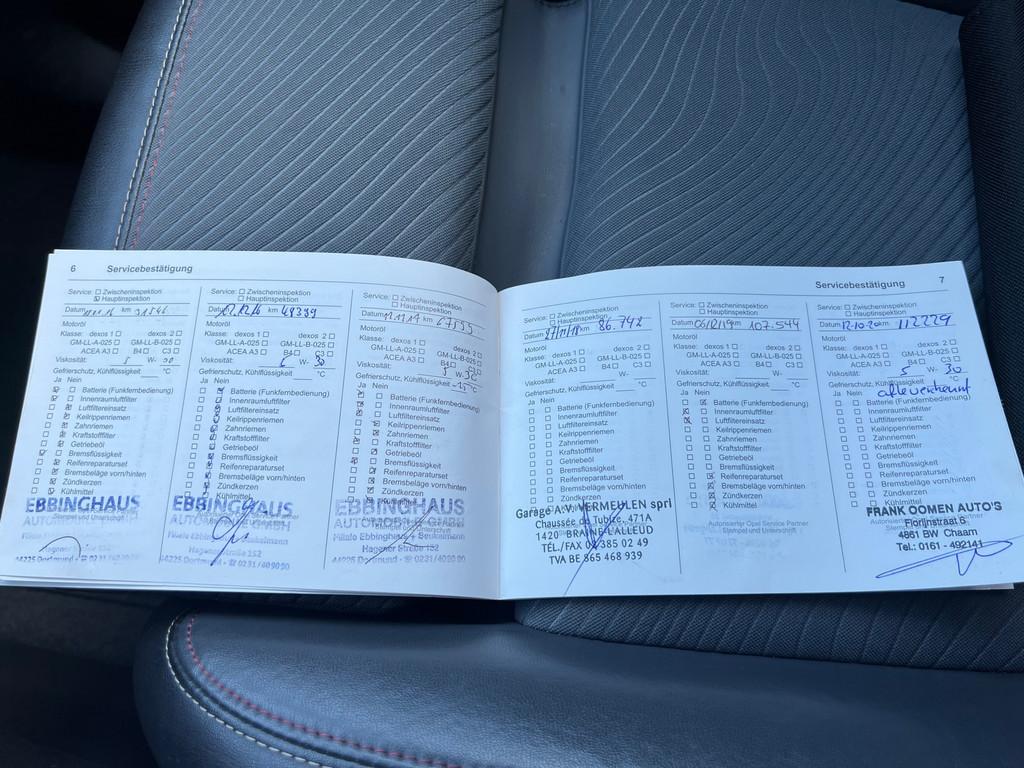 6 Servicebestätigung
Service: Zwischeninspektion
Hauptinspektion
Datum km 31546
Motoröl
Klasse: dexos 1 dexos 2
GM-LL-A-025 GM-LL-B-025
ACEA A3 B4 C3
Viskosität: 5 W-
Gefrierschutz, Kühlflüssigkeit °C
Ja Nein
Batterie (Funkfernbedienung)
Innenraumluftfilter
Luftfiltereinsatz
Keilrippenriemen
Zahnriemen
Kraftstofffilter
Getriebeöl
Bremsflüssigkeit
Reifenreparaturset
Bremsbeläge vorn/hinten
Zündkerzen
Kühlmittel
EBBINGHAUS
Hagener Straße 152
44225 Dortmund · ☎ 0231/409090
Service: Zwischeninspektion
Hauptinspektion
Datum 12.12.16 km 49399
Motoröl
Klasse: dexos 1 dexos 2
GM-LL-A-025 GM-LL-B-025
ACEA A3 B4 C3
Viskosität: 5 W- 30
Gefrierschutz, Kühlflüssigkeit °C
Ja Nein
Batterie (Funkfernbedienung)
Innenraumluftfilter
Luftfiltereinsatz
Keilrippenriemen
Zahnriemen
Kraftstofffilter
Getriebeöl
Bremsflüssigkeit
Reifenreparaturset
Bremsbeläge vorn/hinten
Zündkerzen
Kühlmittel
EBBINGHAUS
Hagener Straße 152
44225 Dortmund · ☎ 0231/409090
Service: Zwischeninspektion
Hauptinspektion
Datum km
Motoröl
Klasse: dexos 1 dexos 2
GM-LL-A-025 GM-LL-B-025
ACEA A3 B4 C3
Viskosität: 5 W- 30
Gefrierschutz, Kühlflüssigkeit -15 °C
Ja Nein
Batterie (Funkfernbedienung)
Innenraumluftfilter
Luftfiltereinsatz
Keilrippenriemen
Zahnriemen
Kraftstofffilter
Getriebeöl
Bremsflüssigkeit
Reifenreparaturset
Bremsbeläge vorn/hinten
Zündkerzen
EBBINGHAUS
AUTOMOBILE GMBH
Filiale Ebbinghaus
Hagener Straße 152
44225 Dortmund · ☎ 0231/409090
Servicebestätigung 7
Service: Zwischeninspektion
Hauptinspektion
Datum 27/11/18 km 86.742
Motoröl
Klasse: dexos 1 dexos 2
GM-LL-A-025 GM-LL-B-025
ACEA A3 B4 C3
Viskosität: W-
Gefrierschutz, Kühlflüssigkeit °C
Ja Nein
Batterie (Funkfernbedienung)
Innenraumluftfilter
Luftfiltereinsatz
Keilrippenriemen
Zahnriemen
Kraftstofffilter
Getriebeöl
Bremsflüssigkeit
Reifenreparaturset
Bremsbeläge vorn/hinten
Zündkerzen
Kühlmittel
Garage A.V. VERMEULEN sprl
Chaussée de Tubize, 471A
1420 BRAINE-L'ALLEUD
TÉL./FAX 02 385 02 49
TVA BE 865 468 939
Service: Zwischeninspektion
Hauptinspektion
Datum 06/12/19 km 107.544
Motoröl
Klasse: dexos 1 dexos 2
GM-LL-A-025 GM-LL-B-025
ACEA A3 B4 C3
Viskosität: W-
Gefrierschutz, Kühlflüssigkeit °C
Ja Nein
Batterie (Funkfernbedienung)
Innenraumluftfilter
Luftfiltereinsatz
Keilrippenriemen
Zahnriemen
Kraftstofffilter
Getriebeöl
Bremsflüssigkeit
Reifenreparaturset
Bremsbeläge vorn/hinten
Zündkerzen
Kühlmittel
Autorisierter Opel Service Partner
Stempel und Unterschrift
Service: Zwischeninspektion
Hauptinspektion
Datum 12-10-20 km 112229
Motoröl
Klasse: dexos 1 dexos 2
GM-LL-A-025 GM-LL-B-025
ACEA A3 B4 C3
Viskosität: 5 W- 30
Gefrierschutz, Kühlflüssigkeit °C
Ja Nein
Batterie (Funkfernbedienung)
Innenraumluftfilter
Luftfiltereinsatz
Keilrippenriemen
Zahnriemen
Kraftstofffilter
Getriebeöl
Bremsflüssigkeit
Reifenreparaturset
Bremsbeläge vorn/hinten
Zündkerzen
Kühlmittel
FRANK OOMEN AUTO'S
Florijnstraat 6
4861 BW Chaam
Tel.: 0161 - 492141